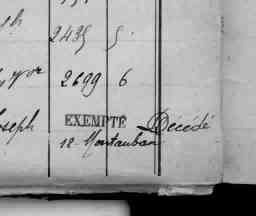 2435 5
yor 2699 6
oseph EXEMPTÉ Décédé
18. Montauban